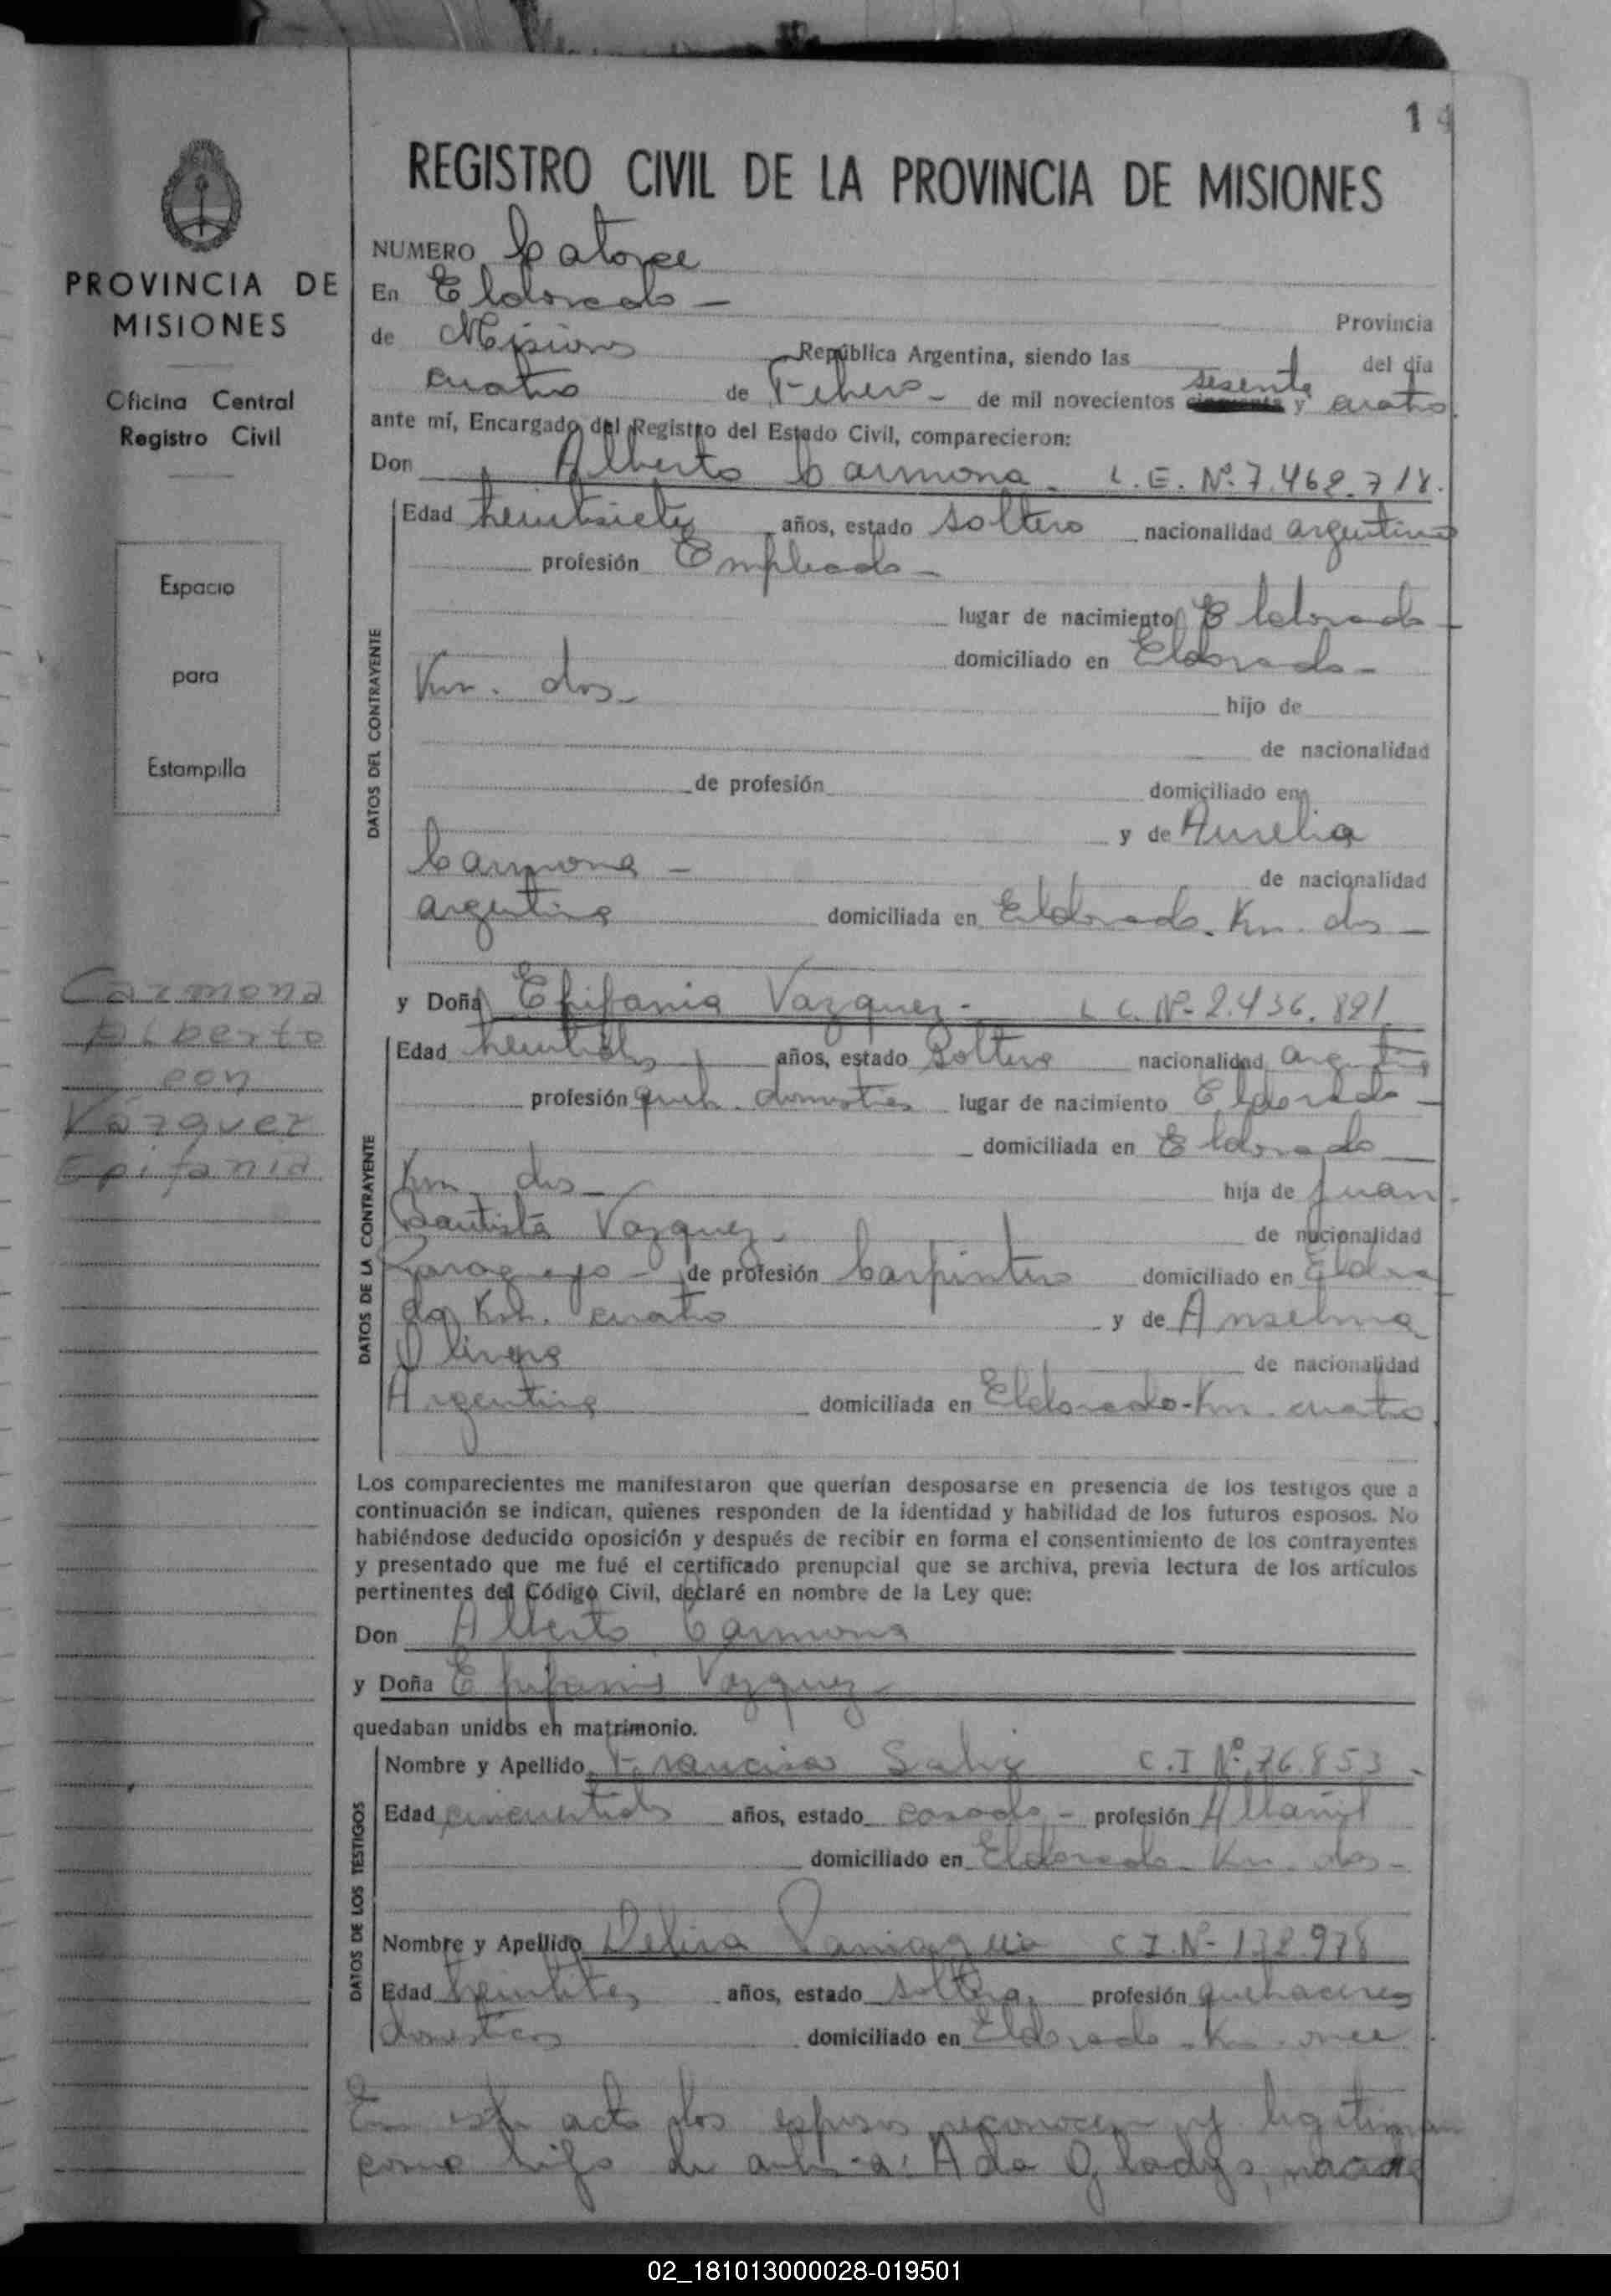 14
REGISTRO CIVIL DE LA PROVINCIA DE MISIONES
PROVINCIA DE
MISIONES
Oficina Central
Registro Civil
Espacio
para
Estampilla
Carmona
Alberto
con
Vázquez
Epifania
NUMERO Catorce
En Eldorado - Provincia
de Misiones República Argentina, siendo las del día
cuatro de Febero - de mil novecientos sesenta y cuatro
ante mí, Encargado del Registro del Estado Civil, comparecieron:
Don Alberto Carmona. L.E. Nº 7.462.718.
DATOS DEL CONTRAYENTE
Edad años, estado soltero nacionalidad argentino
profesión Empleado -
lugar de nacimiento Eldorado -
domiciliado en Eldorado -
Km. dos - hijo de
de nacionalidad
de profesión domiciliado en
y de Aurelia
Carmona - de nacionalidad
argentina domiciliada en Eldorado. Km. dos -
y Doña Epifania Vazquez - L C. Nº 2.436.821
DATOS DE LA CONTRAYENTE
Edad años, estado Soltera nacionalidad argentina
profesión queh. domesticos lugar de nacimiento Eldorado -
domiciliada en Eldorado
Km dos - hija de Juan
Bautista Vazquez - de nacionalidad
Paraguayo - de profesión Carpintero domiciliado en Eldora
do Km. cuatro y de Anselma
Olivera de nacionalidad
Argentina domiciliada en Eldorado - Km. cuatro
Los comparecientes me manifestaron que querían desposarse en presencia de los testigos que a
continuación se indican, quienes responden de la identidad y habilidad de los futuros esposos. No
habiéndose deducido oposición y después de recibir en forma el consentimiento de los contrayentes
y presentado que me fué el certificado prenupcial que se archiva, previa lectura de los artículos
pertinentes del Código Civil, declaré en nombre de la Ley que:
Don Alberto Carmona
y Doña Epifania Vazquez -
quedaban unidos en matrimonio.
DATOS DE LOS TESTIGOS
Nombre y Apellido Francisco C.I Nº 76.853 -
Edad años, estado casado - profesión Albañil
domiciliado en Eldorado - Km. dos -
Nombre y Apellido Paniagua C I. Nº 132.978
Edad años, estado soltera, profesión quehaceres
domesticos domiciliado en Eldorado - Km. once
En este acto los esposos reconocen y legitiman
como hijo de ambos a: Ada Gladys, nacida
02_181013000028-019501